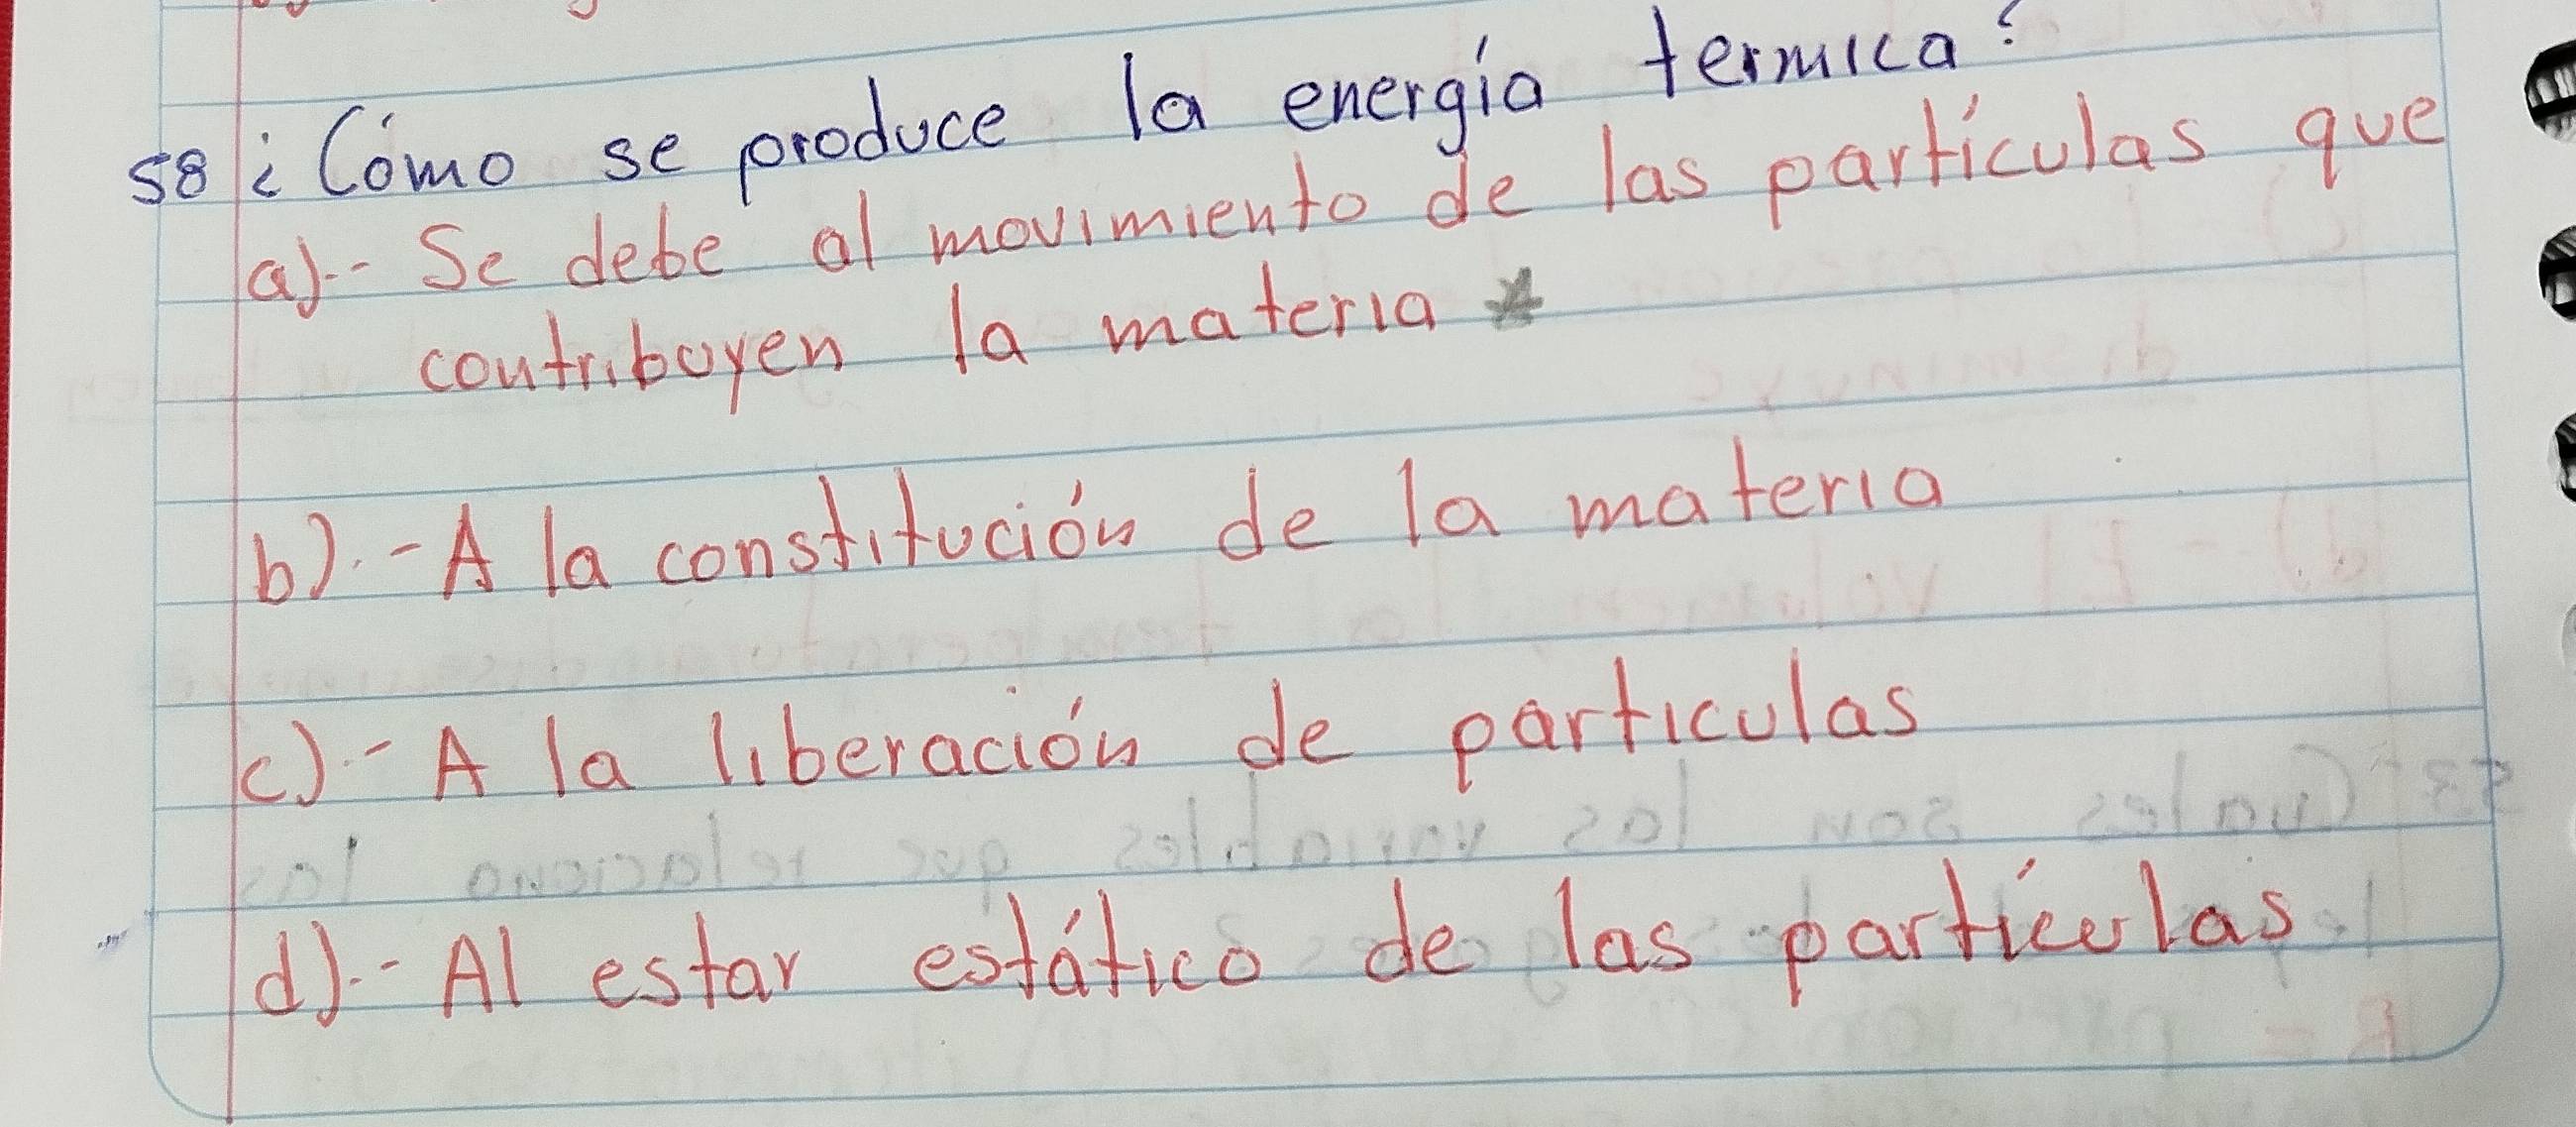 58 ¿Cómo se produce la energía termica?
a).- Se debe al movimiento de las partículas que
contribuyen la materia *
b).- A la constitución de la materia
c).- A la liberación de particulas
d).- Al estar estático de las partículas